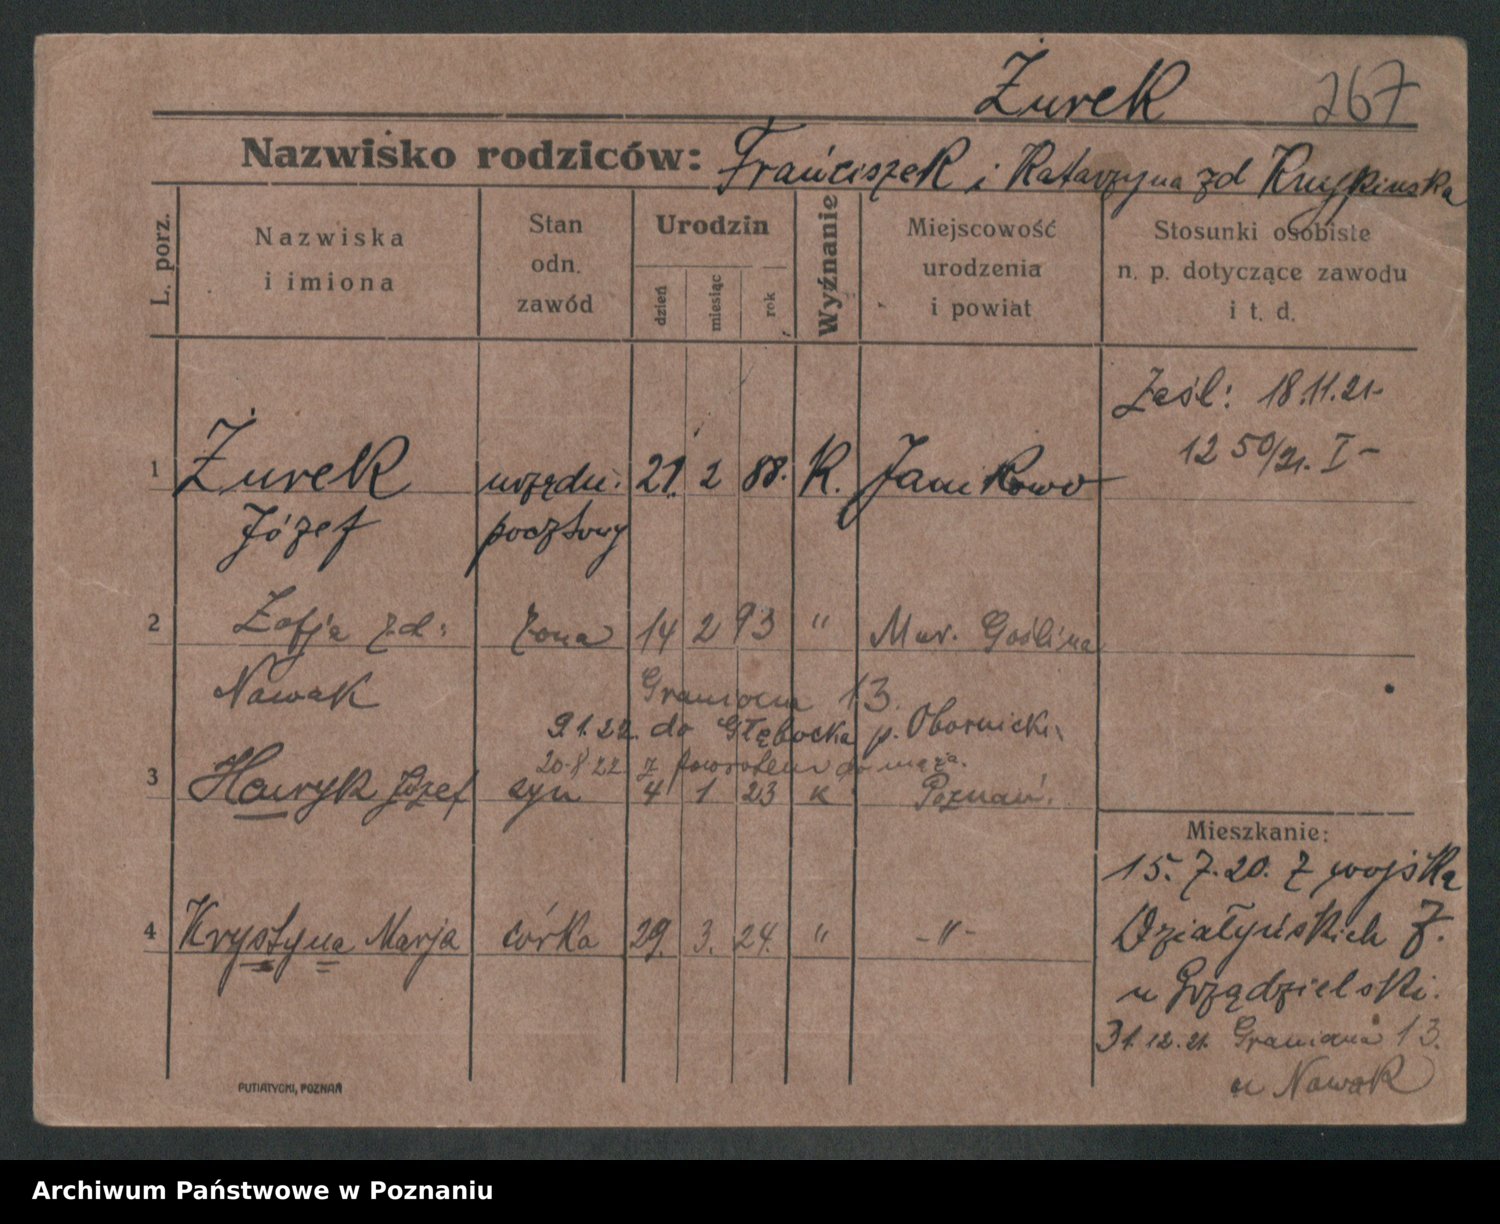 Żurek 267
Nazwisko rodziców: Franciszek i Katarzyna zd
L. porz.
Nazwiska
i imiona
Stan
odn.
zawód
Urodzin
dzień
miesiąc
rok
Wyznanie
Miejscowość
urodzenia
i powiat
Stosunki osobiste
n. p. dotyczące zawodu
i t. d.
Zaśl: 18.11.21-
1250/21. I-
1 Żurek urzędn: 21. 2 88. K. Janikowo
Józef pocztowy
2 Zofja z.d: żona 14 2 93 " Mur. Goślina
Nowak Graniczna 13.
9 1.22. do Głębocka p. Obornicki
20.8 22 z powrotem do męża.
3 Henryk Józef syn 4 1 23 K Poznań.
4 Krystyna Marja córka 29. 3. 24. " -"-
Mieszkanie:
15. 7. 20. z wojska
Działyńskich 7.
u Grządzielski.
31. 12. 21. Graniczna 13.
u Nowak
PUTIATYCKI, POZNAŃ
Archiwum Państwowe w Poznaniu